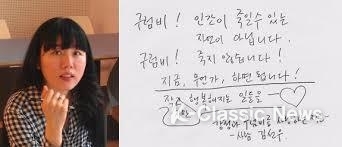 구럼비! 인간이 죽일수 있는
자연이 아닙니다.
구럼비! 죽지 않습니다!
지금, 무언가, 하면 됩니다!
작은 행복해지는 일들을
Classic News
- 시인 김선우